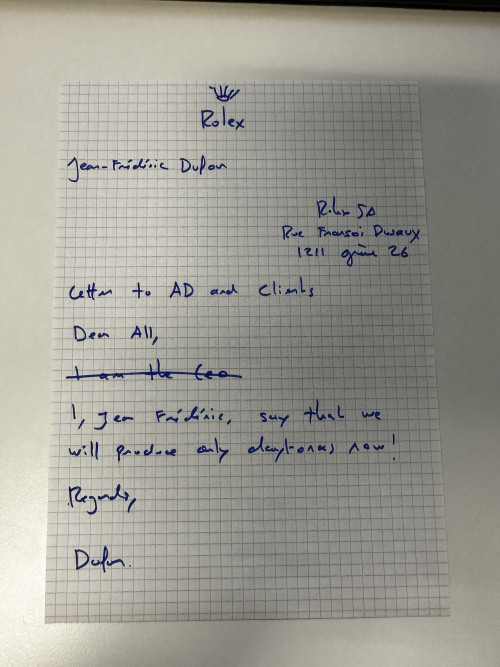 Rolex
Jean-Frédéric Dufour
Rolex SA
Rue François Dussaux
1211 genève 26
Letter to AD and Clients
Dear All,
I am the Ceo
I, Jean Frédéric, say that we
will produce only daytonas now!
Regards,
Dufour.